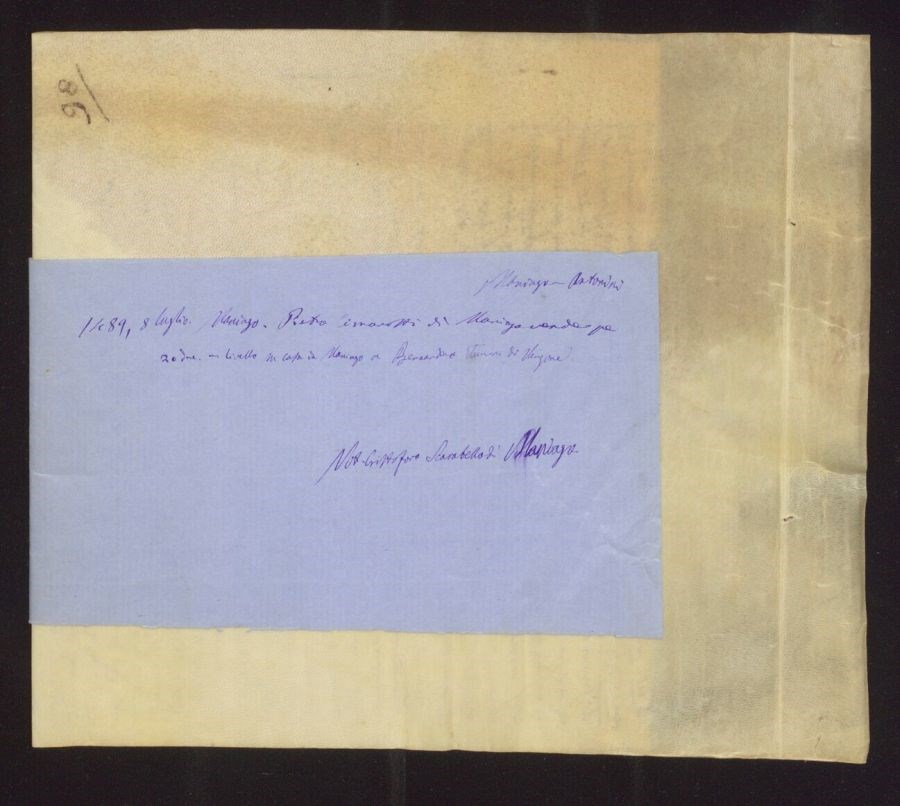 98
Maniago - Antonini
1489, 8 luglio. Maniago. Pietro di Maniago vende per
20 duc. un livello su casa in Maniago a Bernardino di
Not. Cristoforo Scarabello di Maniago